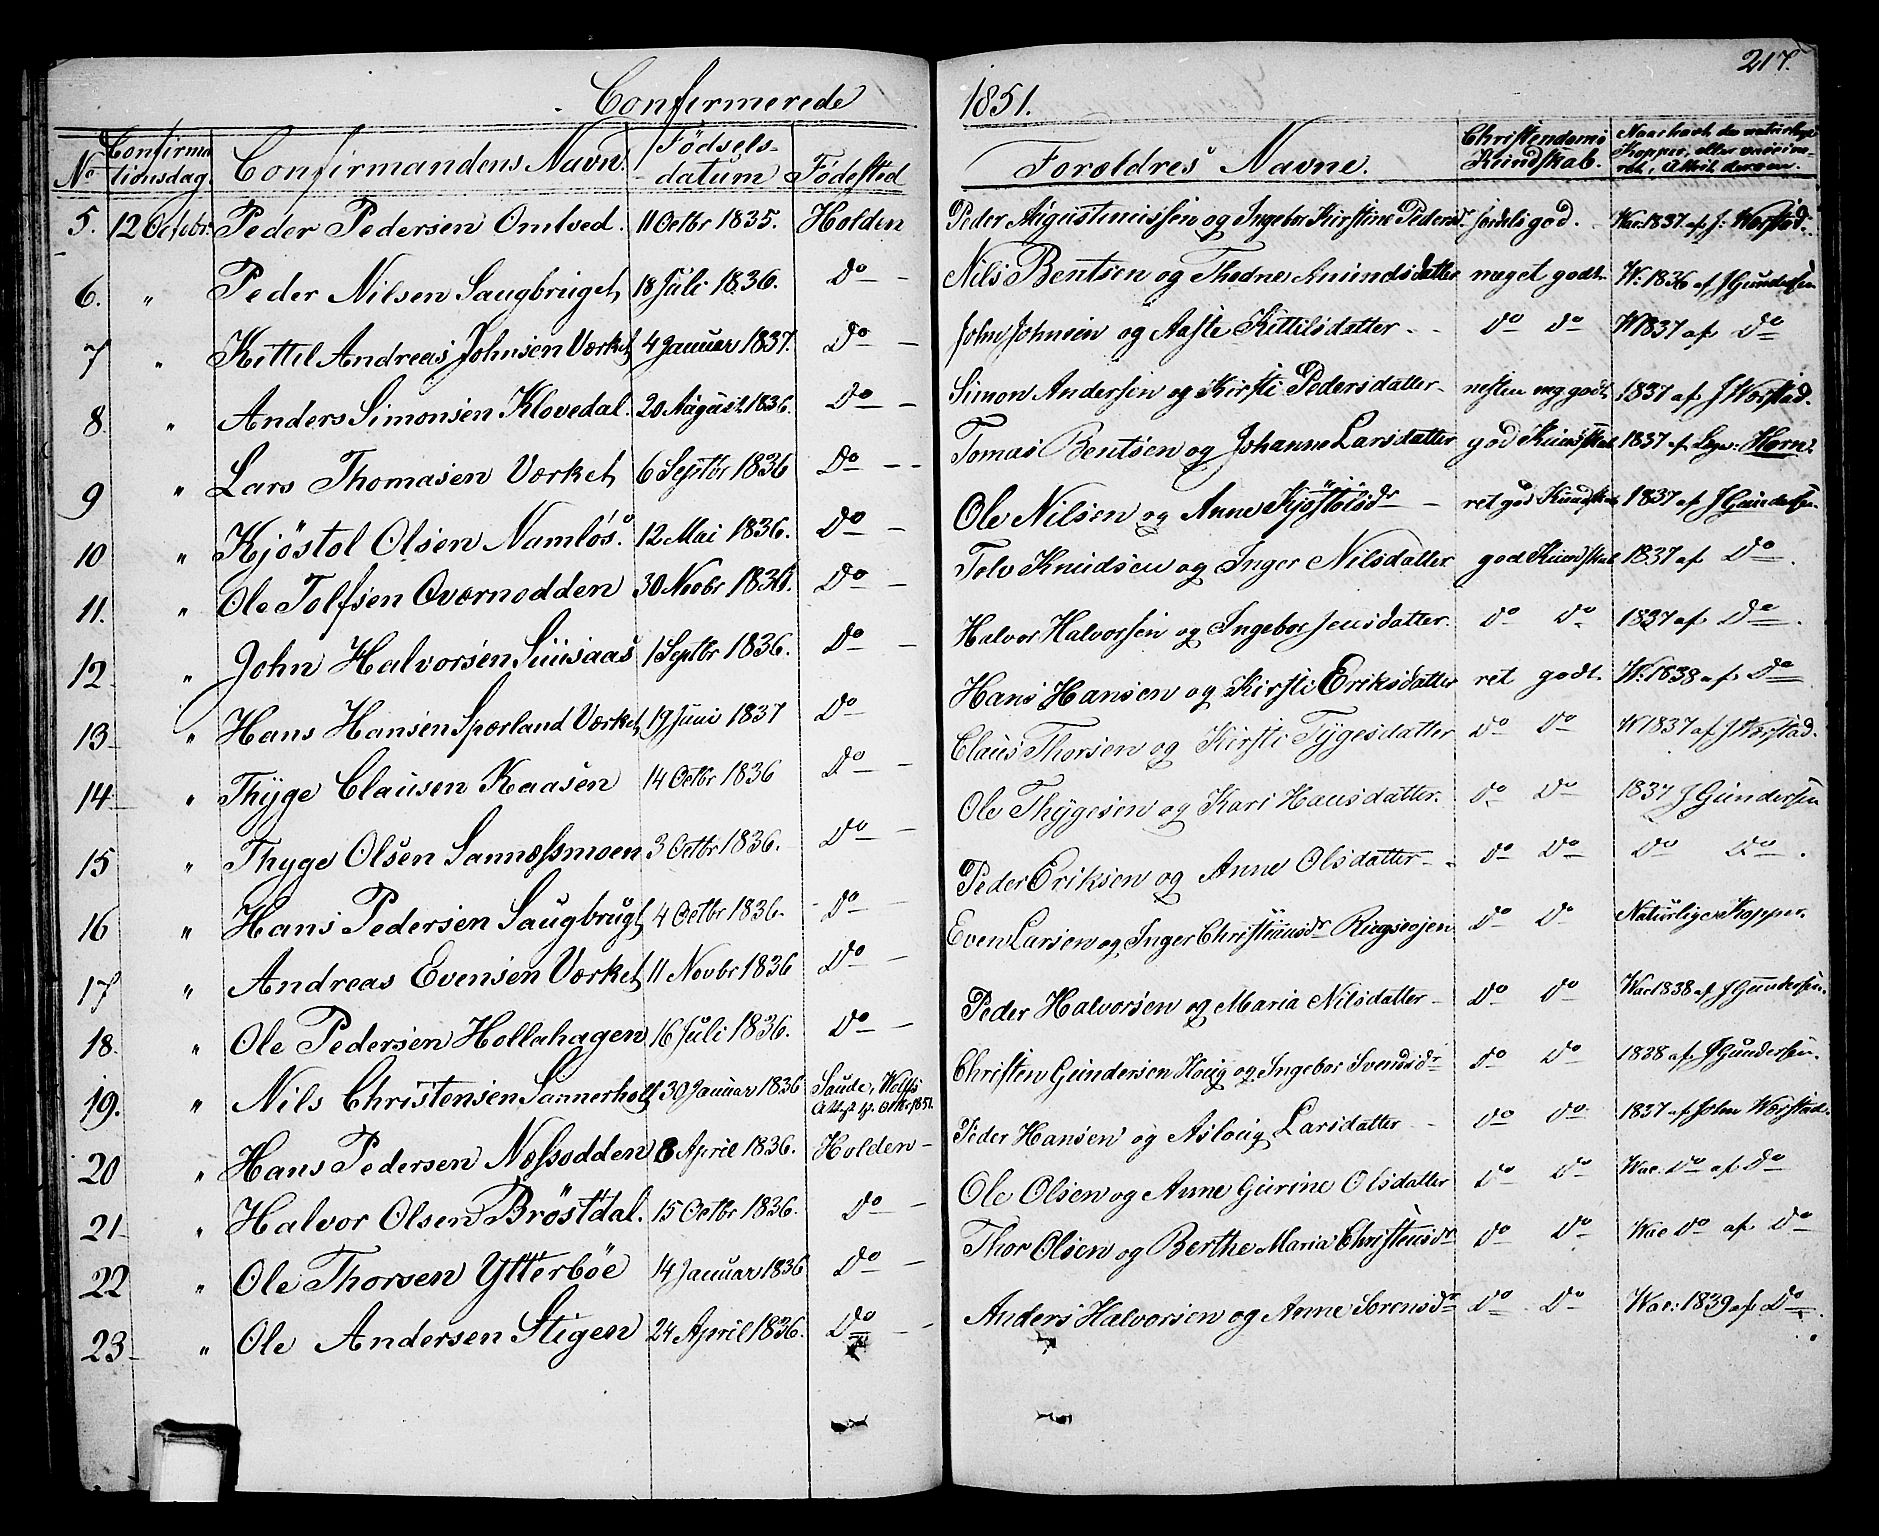 217.
Confirmerede 1851.
No Confirmationsdag. Confirmandens Navn. Fødselsdatum Fødested Forældres Navne. Christendoms Kundskab. Naar havt de naturlige Kopper, eller vaccineret, Attest derom.
5. 12 Octobr. Peder Pedersen Omtved. 11 Octbr 1835. Holden Peder Augustinussen og Ingebor Kirstine Pedersd. god. Vac. 1837. af J. Værstad.
6. " Peder Nilsen Saugbruget, 18 Juli 1836. Do — Nils Bentsen og Thedne Amundsdatter meget godt. V. 1836 af J Gundersen
7 " Kittil Andreas Johnsen Værket, 4 Januar 1837. Do — John Johnsen og Aaste Kittilsdatter - - do do V 1837 af Do
8. " Anders Simonsen Klovedal. 20 August 1836. Do — Simon Andersen og Kirsti Pedersdatter - nesten meg godt, 1837 af J Værstad.
9 " Lars Thomasen Værket, 6 Septbr 1836 Do - - Tomas Bentsen og Johanne Larsdatter god Kundskab 1837 af Horn
10 " Kjöstol Olsen Namløs. 12 Mai 1836. Do — Ole Nilsen og Anne Kjöstolsdr - ret god Kundskab 1837 af J Gundersen.
11. " Ole Tolfsen Oværnodden 30 Novbr 1836. Do — Tolv Knudsen og Inger Nilsdatter god Kundskab 1837 af Do.
12 " John Halvorsen Suusaas 1 Septbr 1836. Do — Halvor Halvorsen og Ingebor Jensdatter. do do 1837 af Do.
13 " Hans Hansen Sporland Værket, 19 Juni 1837 Do Hans Hansen og Kirsti Eriksdatter ret godt. V. 1838 af Do
14 " Thyge Clausen Kaasen 14 Octbr 1836 Do — Claus Thorsen og Kirsti Tygesdatter do do V 1837 af J Værstad.
15 " Thyge Olsen Sannæssmoen 3 Octbr 1836. Do — Ole Thygesen og Kari Hansdatter. do do 1837 J Gundersen
16 " Hans Pedersen Saugbrugt, 4 Octbr 1836. Do — Peder Eriksen og Anne Olsdatter - do do do do.
17 " Andreas Evensen Værket, 11 Novbr 1836 Do — Even Larsen og Inger Christiansdr Ringsevjen do do Naturlige Kopper.
18. " Ole Pedersen Hollahagen 16 Juli 1836. Do — Peder Halvorsen og Maria Nilsdatter - do do Vac 1838 af J Gundersen.
19. " Nils Christensen Sannerholt, 30 Januar 1836 Saude, 1851. Christen Gundersen Houg og Ingebor Svendsdr do do 1838 af J Gundersen.
20 " Hans Pedersen Næssodden 8 April 1836. Holden — Peder Hansen og Aslaug Larsdatter - do do 1837 af John Værstad.
21 " Halvor Olsen Bröstdal. 15 Octbr 1836. do — Ole Olsen og Anne Gurine Olsdatter do do Vac. do af do
22 " Ole Thorsen Ytterböe 14 Januar 1836 do — Thor Olsen og Berthe Maria Christensdr do do Vac do af do
23 " Ole Andersen Stigen 24 April 1836. Do — Anders Halvorsen og Anne Sorensdr do do Vac: 1839 af Do.